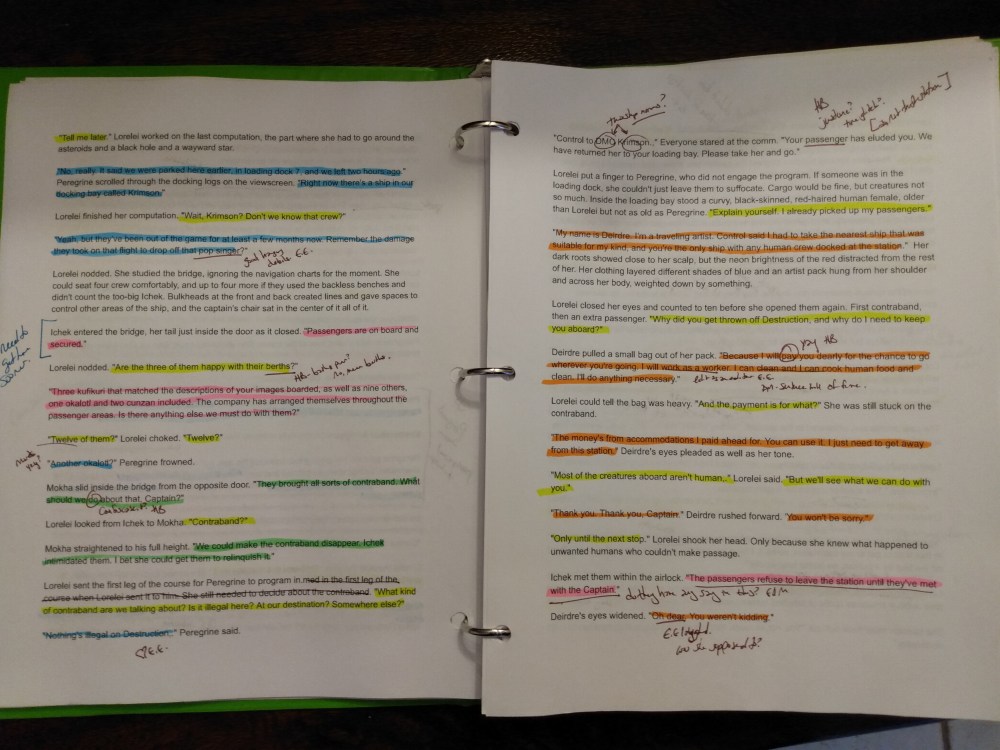 "Tell me later." Lorelei worked on the last computation, the part where she had to go around the
asteroids and a black hole and a wayward star.
"No, really. It said we were parked here earlier, in loading dock 7, and we left two hours ago."
Peregrine scrolled through the docking logs on the viewscreen. "Right now there's a ship in our
docking bay called Krimson."
Lorelei finished her computation. "Wait, Krimson? Don't we know that crew?"
"Yeah, but they've been out of the game for at least a few months now. Remember the damage
they took on that flight to drop off that pop singer?"
E.E.
Lorelei nodded. She studied the bridge, ignoring the navigation charts for the moment. She
could seat four crew comfortably, and up to four more if they used the backless benches and
didn't count the too-big Ichek. Bulkheads at the front and back created lines and gave spaces to
control other areas of the ship, and the captain's chair sat in the center of it all of it.
Ichek entered the bridge, her tail just inside the door as it closed. "Passengers are on board and
secured."
Lorelei nodded. "Are the three of them happy with their berths?"
"Three kufikuri that matched the descriptions of your images boarded, as well as nine others,
one okalotl and two cunzan included. The company has arranged themselves throughout the
passenger areas. Is there anything else we must do with them?"
"Twelve of them?" Lorelei choked. "Twelve?"
"Another okalotl?" Peregrine frowned.
Mokha slid inside the bridge from the opposite door. "They brought all sorts of contraband. What
should we do about that, Captain?"
HB
Lorelei looked from Ichek to Mokha. "Contraband?"
Mokha straightened to his full height. "We could make the contraband disappear. Ichek
intimidated them. I bet she could get them to relinquish it."
Lorelei sent the first leg of the course for Peregrine to program in.med in the first leg of the
course when Lorelei sent it to him. She still needed to decide about the contraband. "What kind
of contraband are we talking about? Is it illegal here? At our destination? Somewhere else?"
"Nothing's illegal on Destruction." Peregrine said.
E.E.
the ship name?
HB
"Control to DMC Krimson.," Everyone stared at the comm. "Your passenger has eluded you. We
have returned her to your loading bay. Please take her and go."
Lorelei put a finger to Peregrine, who did not engage the program. If someone was in the
loading dock, she couldn't just leave them to suffocate. Cargo would be fine, but creatures not
so much. Inside the loading bay stood a curvy, black-skinned, red-haired human female, older
than Lorelei but not as old as Peregrine. "Explain yourself. I already picked up my passengers."
"My name is Deirdre. I'm a traveling artist. Control said I had to take the nearest ship that was
suitable for my kind, and you're the only ship with any human crew docked at the station." Her
dark roots showed close to her scalp, but the neon brightness of the red distracted from the rest
of her. Her clothing layered different shades of blue and an artist pack hung from her shoulder
and across her body, weighted down by something.
Lorelei closed her eyes and counted to ten before she opened them again. First contraband,
then an extra passenger. "Why did you get thrown off Destruction, and why do I need to keep
you aboard?"
HB
Deirdre pulled a small bag out of her pack. "Because I will pay you dearly for the chance to go
wherever you're going. I will work as a worker. I can clean and I can cook human food and
clean. I'll do anything necessary."
E.E
Lorelei could tell the bag was heavy. "And the payment is for what?" She was still stuck on the
contraband.
"The money's from accommodations I paid ahead for. You can use it. I just need to get away
from this station." Deirdre's eyes pleaded as well as her tone.
"Most of the creatures aboard aren't human.," Lorelei said. "But we'll see what we can do with
you."
"Thank you. Thank you, Captain." Deirdre rushed forward. "You won't be sorry."
"Only until the next stop." Lorelei shook her head. Only because she knew what happened to
unwanted humans who couldn't make passage.
Ichek met them within the airlock. "The passengers refuse to leave the station until they've met
with the Captain."
Deirdre's eyes widened. "Oh dear. You weren't kidding."